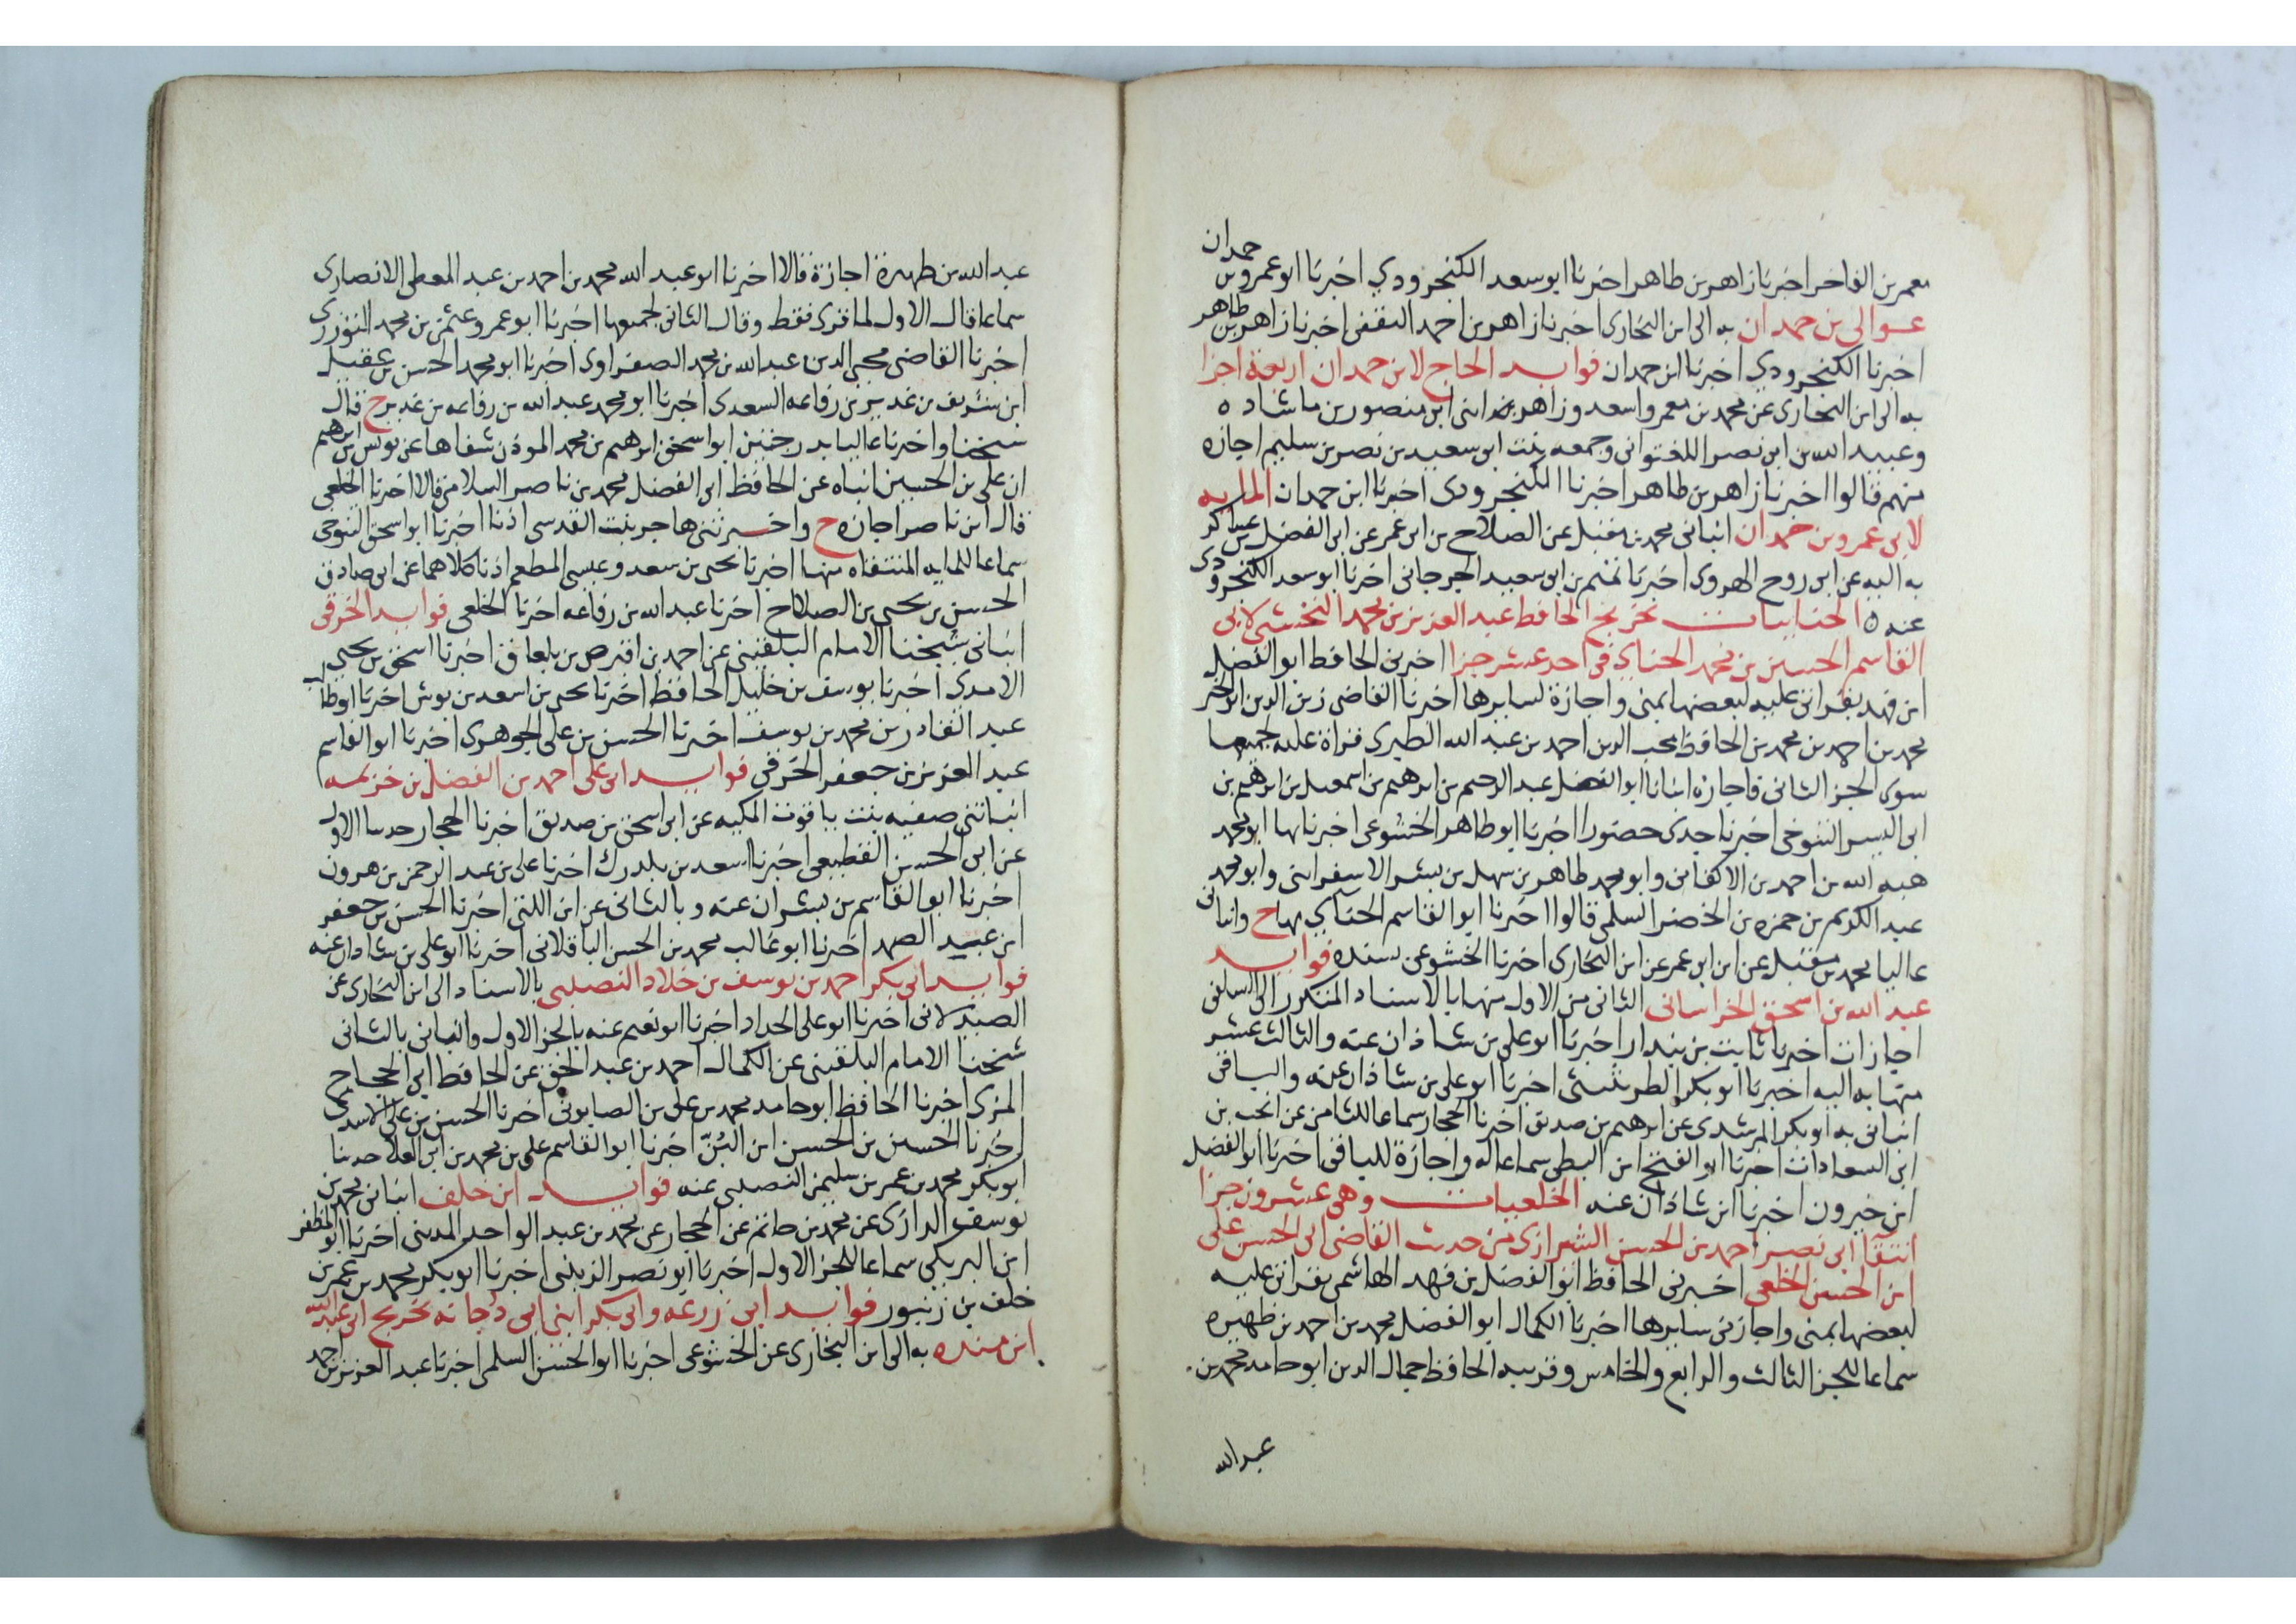 معمر بن الفاخر اخبرنا زاهر بن طاهر اخبرنا ابو سعد الكنجرودي اخبرنا ابو عمرو بن حمدان
عوالى بن حمدان به الى ابن البخارى اخبرنا زاهر بن احمد الثقفى اخبرنا زاهر بن طاهر
اخبرنا الكنجرودي اخبرنا ابن حمدان فوايد الحاج لابن حمدان اربعة اجزا
به الى ابن البخارى عن محمد بن معمر واسعد وزاهر ابنى ابن منصور بن ماشاده
وعبيد الله بن ابى نصر اللفتوانى وجمعه بنت ابى سعيد بن نصر بن سليم اجازه
منهم قالوا اخبرنا زاهر بن طاهر اخبرنا الكنجرودى اخبرنا ابن حمدان المايه
لابى عمرو بن حمدان انبانى محمد بن مقبل عن الصلاح بن ابى عمر عن ابى الفضل بن عساكر
به اليه عن ابى روح الهروى اخبرنا تميم بن ابى سعيد الجرجانى اخبرنا ابو سعد الكنجرودى
عنه ه الحنابيات تخريج الحافظ عبد العزيز بن محمد النخشبى لابى
القاسم الحسين بن محمد الحناى فى احد عشر جزا اخبرنى الحافظ ابو الفضل
ابن فهد بقراتى عليه لبعضها بمنى واجازة لسايرها اخبرنا القاضى زين الدين ابو الخير
محمد بن احمد بن محمد بن الحافظ محب الدين احمد بن عبد الله الطبرى قراة عليه لجميعها
سوى الجز الثانى فاجازه انبانا ابو الفضل عبد الرحيم بن ابرهيم بن اسمعيل بن ابرهيم بن
ابى اليسر التنوخى اخبرنا جدى حضورا اخبرنا ابو طاهر الخشوعى اخبرنا بها ابو محمد
هبه الله بن احمد بن الاكفانى وابو محمد طاهر بن سهل بن بشر الاسفراينى وابو محمد
عبد الكريم بن حمزه بن الخضر السلمى قالوا اخبرنا ابو القاسم الحناي بها ح وانبانى
عاليا محمد بن مقبل عن ابن ابى عمر عن ابن البخارى اخبرنا الخشوعى بسنده فوايد
عبد الله بن اسحق الخراسانى الثانى من الاول منها بالاسناد المذكور الى السلفى
اجازات اخبرنا ثابت بن بندار اخبرنا ابو على بن شاذان عنه والثالث عشر
منها به اليه اخبرنا ابو بكر الطريثيثى اخبرنا ابو على بن شاذان عنه والباقى
انبانى به ابو بكر المرشدى عن ابرهيم بن صديق اخبرنا الحجار سماعا للثامن عن انجب بن
ابى السعادات اخبرنا ابو الفتح ابن البطى سماعا له واجازة للباقى اخبرنا ابو الفضل
ابن خيرون اخبرنا ابن شاذان عنه الخلعيات وهى عشرون جزا
انتقا ابى نصر احمد بن الحسن الشيرازى من حديث القاضى ابى الحسن على
ابن الحسن الخلعى اخبرنى الحافظ ابو الفضل بن فهد الهاشمى بقراتى عليه
لبعضها بمنى واجازتى سايرها اخبرنا الكمال ابو الفضل محمد بن احمد بن ظهيره
سماعا للجز الثالث والرابع والخامس وقريبه الحافظ جمال الدين ابو حامد محمد بن
عبد الله
عبد الله بن ظهيرة اجازة قالا اخبرنا ابو عبد الله محمد بن احمد بن عبد المعطى الانصارى
سماعا قال الاول لما قرى فقط وقال الثانى لجميعها اخبرنا ابو عمرو عثمن بن محمد التوزرى
اخبرنا القاضى محيى الدين عبد الله بن محمد الصفراوى اخبرنا ابو محمد الحسن بن عقيل
ابن شريف بن غدير بن رفاعه السعدى اخبرنا ابو محمد عبد الله بن رفاعه بن غدير ح قال
شيخنا واخبرنا عاليا بدرجتين ابو اسحق ابرهيم بن محمد الموذن شفاها عن يونس بن ابرهيم
ان على بن الحسين انباه عن الحافظ ابى الفضل محمد بن ناصر السلامى قالا اخبرنا الخلعى
قال ابن ناصر اجازه ح واخبرتنى هاجر بنت القدسى اذنا اخبرنا ابو اسحق التنوخى
سماعا للمايه المنتقاه منها اخبرنا يحيى بن سعد وعيسى المطعم اذنا كلاهما عن ابى صادق
الحسن بن يحيى بن الصلاح اخبرنا عبد الله بن رفاعه اخبرنا الخلعى فوايد الخرقى
انبانى شيخنا الامام البلقينى عن احمد بن اقبرص بن بلغاق اخبرنا اسحق بن يحيى
الامدى اخبرنا يوسف بن خليل الحافظ اخبرنا يحيى بن اسعد بن بوش اخبرنا ابو طالب
عبد القادر بن محمد بن يوسف اخبرنا الحسن بن على الجوهرى اخبرنا ابو القاسم
عبد العزيز بن جعفر الخرقى فوايد ابى على احمد بن الفضل بن خزيمه
انباتنى صفيه بنت ياقوت المكيه عن ابى اسحق بن صديق اخبرنا الحجار حدثنا الاول
عن ابى الحسن القطيعى اخبرنا اسعد بن بلدرك اخبرنا على بن عبد الرحمن بن هرون
اخبرنا ابو القاسم بن بشران عنه وبالثانى عن ابن اللتى اخبرنا الحسن بن جعفر
ابن عبد الصمد اخبرنا ابو غالب محمد بن الحسن الباقلانى اخبرنا ابو على بن شاذان عنه
فوايد ابى بكر احمد بن يوسف بن خلاد النصيبى بالاسناد الى ابن البخارى عن
الصيدلانى اخبرنا ابو على الحداد اخبرنا ابو نعيم عنه بالجز الاول وانبانى بالثانى
شيخنا الامام البلقينى عن الكمال احمد بن عبد الحق عن الحافظ ابى الحجاج
المزى اخبرنا الحافظ ابو حامد محمد بن على بن الصابونى اخبرنا الحسن بن على الاسدى
اخبرنا الحسين بن الحسن ابن البُنّ اخبرنا ابو القاسم على بن محمد بن ابى العلا حدثنا
ابو بكر محمد بن عمر بن سليمن النصيبى عنه فوايد ابن خلف انبانى محمد بن
يوسف الرازى عن محمد بن حاتم عن الحجار عن محمد بن عبد الواحد المدينى اخبرنا ابو المظفر
ابن البريكى سماعا للجز الاول اخبرنا ابو نصر الزينبى اخبرنا ابو بكر محمد بن عمر بن
خلف بن زنبور فوايد ابى زرعه وابى بكر ابنى ابى دُجانه تخريج ابى عبد الله
ابن منده به الى ابن البخارى عن الخشوعى اخبرنا ابو الحسن السلمى اخبرنا عبد العزيز بن احمد